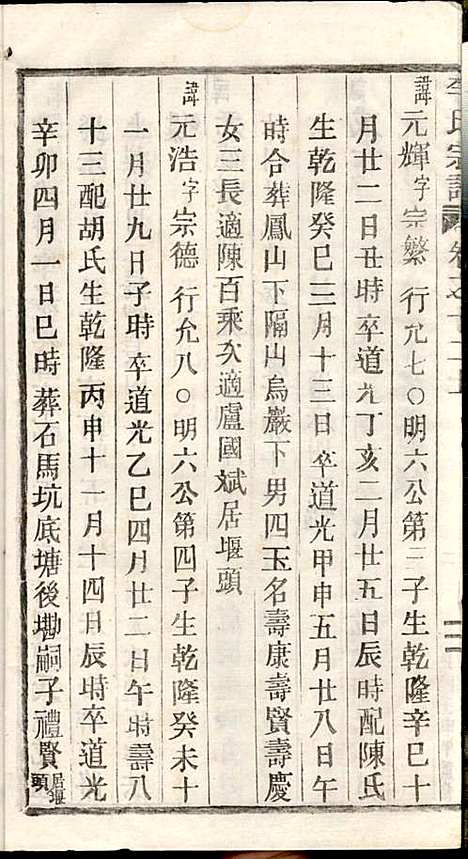 李氏宗譜 卷之十二
諱元輝字宗繁 行允七〇明六公第三子生乾隆辛巳十
月廿二日丑時卒道光丁亥二月廿五日辰時配陳氏
生乾隆癸巳三月十三日卒道光甲申五月廿八日午
時合葬鳳山下隔山烏巖下男四玉名壽康壽賢壽慶
女三長適陳百乘次適盧國斌居堰頭
諱元浩字宗德 行允八〇明六公第四子生乾隆癸未十
一月廿九日子時卒道光乙巳四月廿二日午時壽八
十三配胡氏生乾隆丙申十一月十四日辰時卒道光
辛卯四月一日巳時葬石馬坑底塘後塝嗣子禮賢居堰頭